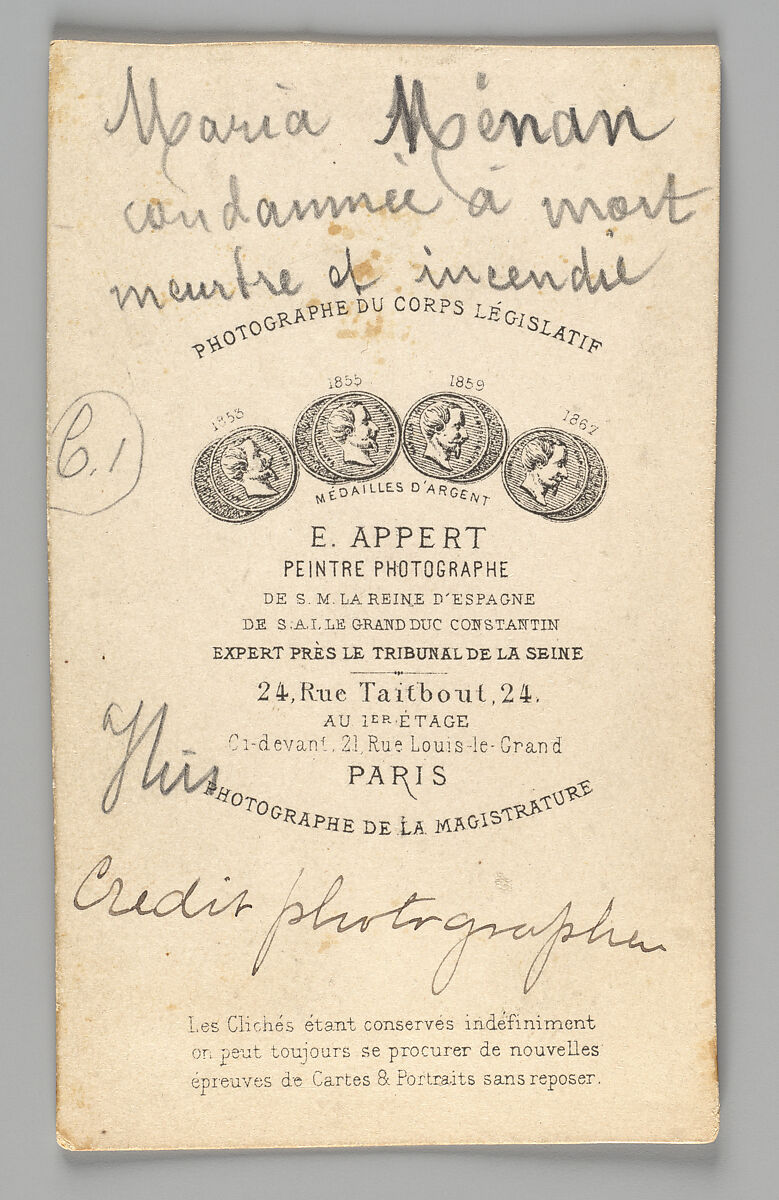 Maria Ménan
condamnée à mort
meurtre et incendie
PHOTOGRAPHE DU CORPS LÉGISLATIF
1853 1855 1859 1862
C.1
MÉDAILLES D'ARGENT
E. APPERT
PEINTRE PHOTOGRAPHE
DE S. M. LA REINE D'ESPAGNE
DE S.A.I. LE GRAND DUC CONSTANTIN
EXPERT PRÈS LE TRIBUNAL DE LA SEINE
24, Rue Taitbout, 24.
AU 1ER ÉTAGE
Ci-devant, 21, Rue Louis-le-Grand
PARIS
PHOTOGRAPHE DE LA MAGISTRATURE
Credit
Les Clichés étant conservés indéfiniment
on peut toujours se procurer de nouvelles
épreuves de Cartes & Portraits sans reposer.